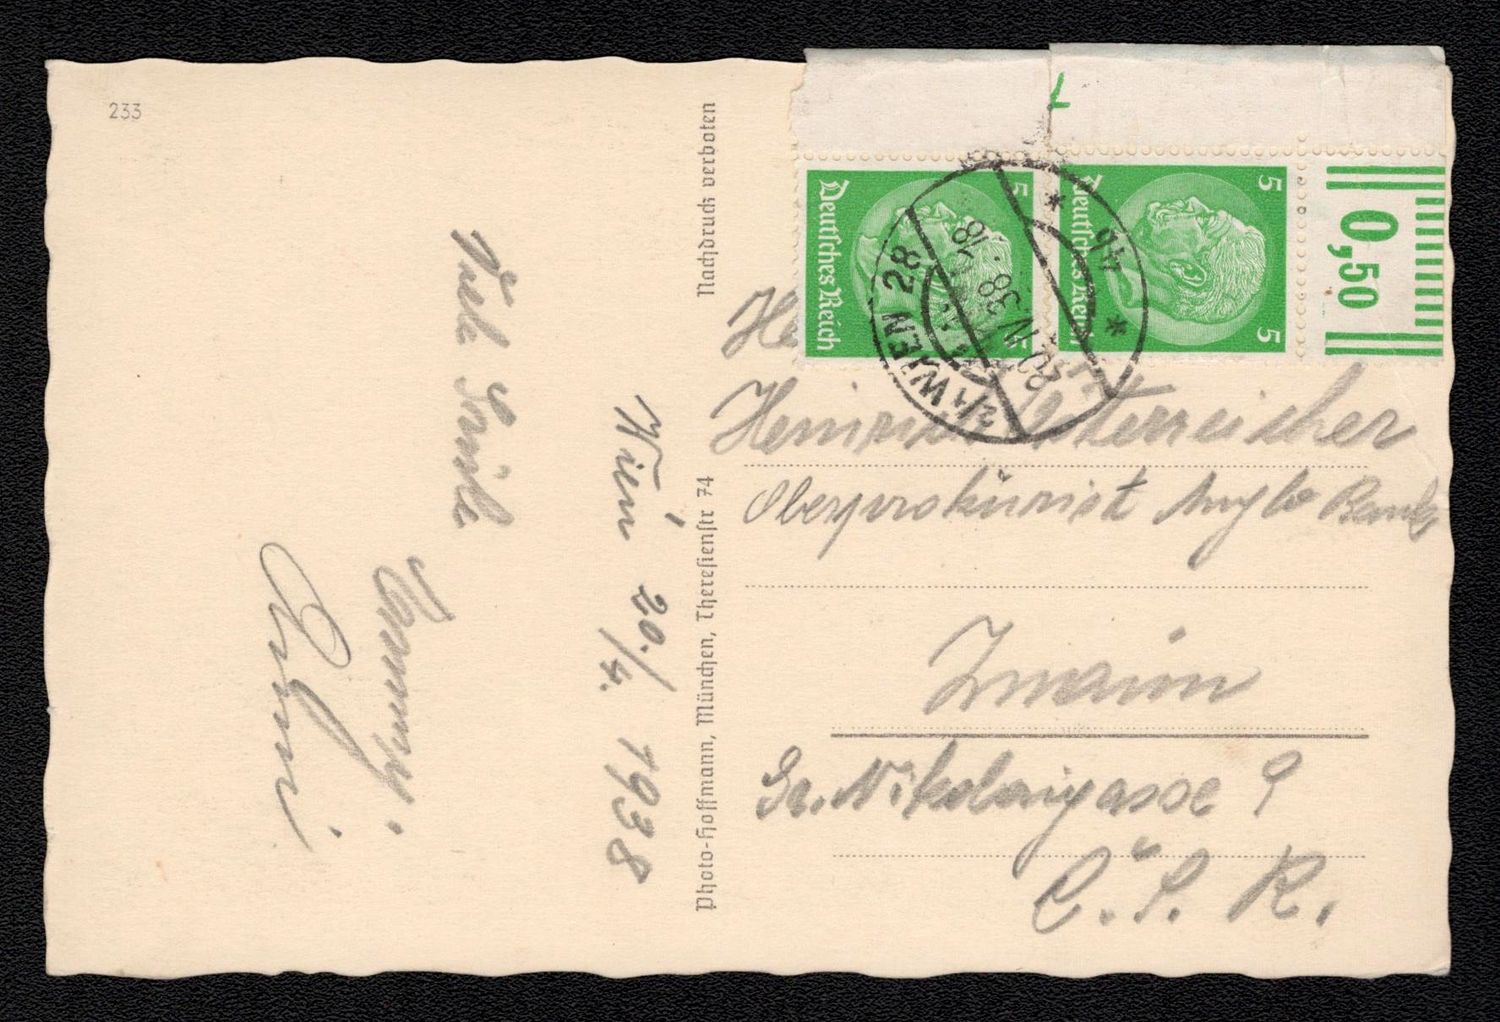 233
Viele Grüße
Wien 20./4. 1938
Nachdruck verboten
Photo-Hoffmann, München, Theresienstr 74
5
Deutsches Reich
5
5
Deutsches Reich
5
0,50
2/1 WIEN 28
20.IV.38.-18
* 4b *
He
Heinrich Österreicher
Oberprokurist Anglo Bank
Znaim
Gr. Nikolaigasse 9
Č.S.R.